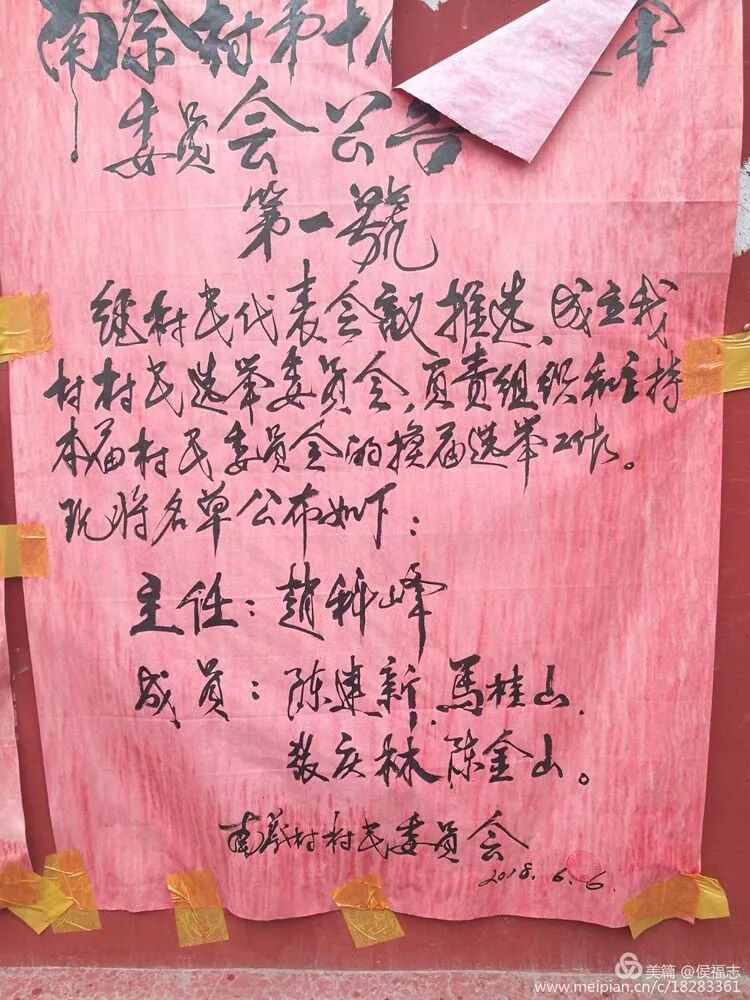 村第十 举
委员会公告
第一號
经村民代表会议推选,成立我
村村民选举委员会,负责组织和主持
本届村民委员会的换届选举工作。
现将名单公布如下:
主任:趙科峰
成员:陈建新,馬桂山,
庆林,陈金山。
南 村村民委员会
2018.6.6.
美篇 @侯福志
www.meipian.cn/c/18283361